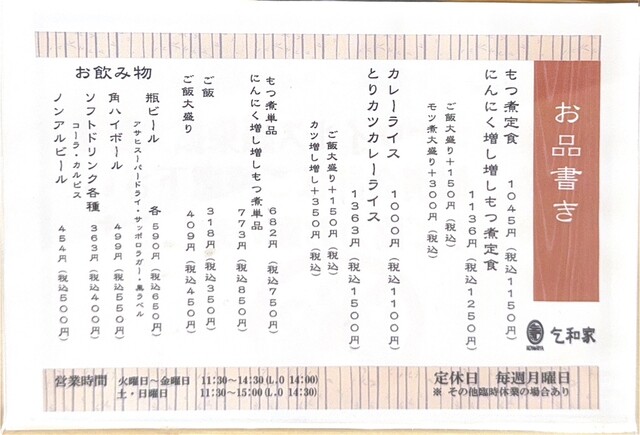 お品書き
もつ煮定食 1045円（税込1150円）
にんにく増し増しもつ煮定食 1136円（税込1250円）
ご飯大盛り+150円（税込）
モツ煮大盛り+300円（税込）
カレーライス 1000円（税込1100円）
とりカツカレーライス 1363円（税込1500円）
ご飯大盛り+150円（税込）
カツ増し増し+350円（税込）
もつ煮単品 682円（税込750円）
にんにく増し増しもつ煮単品 773円（税込850円）
ご飯 318円（税込350円）
ご飯大盛り 409円（税込450円）
お飲み物
瓶ビール 各590円（税込650円）
アサヒスーパードライ・サッポロラガー・黒ラベル
角ハイボール 499円（税込550円）
ソフトドリンク各種 363円（税込400円）
コーラ・カルピス
ノンアルビール 454円（税込500円）
乞和家
KOWAYA
定休日 毎週月曜日
※ その他臨時休業の場合あり
営業時間 火曜日～金曜日 11:30～14:30(L.O 14:00)
土・日曜日 11:30～15:00(L.O 14:30)